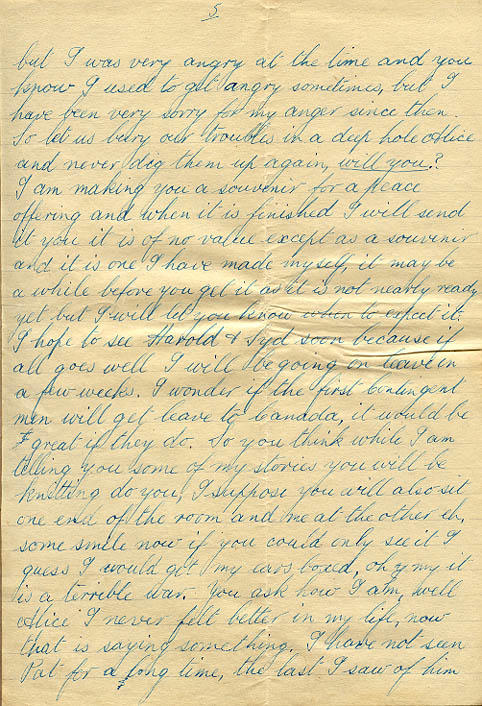 5
but I was very angry at the time and you
know I used to get angry sometimes, but I
have been very sorry for my anger since then.
So let us bury our troubles in a deep hole Alice
and never dig them up again, will you?
I am making you a souvenir for a peace
offering and when it is finished I will send
it you it is of no value except as a souvenir
and it is one I have made myself, it may be
a while before you get it as it is not nearly ready
yet but I will let you know when to expect it.
I hope to see Harold & Syd soon because if
all goes well I will be going on leave in
a few weeks. I wonder if the first Contingent
men will get leave to Canada, it would be
great if they do. So you think while I am
telling you some of my stories you will be
knitting do you, I suppose you will also sit
one end of the room and me at the other eh,
some smile now if you could only see it I
guess I would get my ears boxed, oh my it
is a terrible war. You ask how I am, well
Alice I never felt better in my life, now
that is saying something. I have not seen
Pat for a long time, the last I saw of him